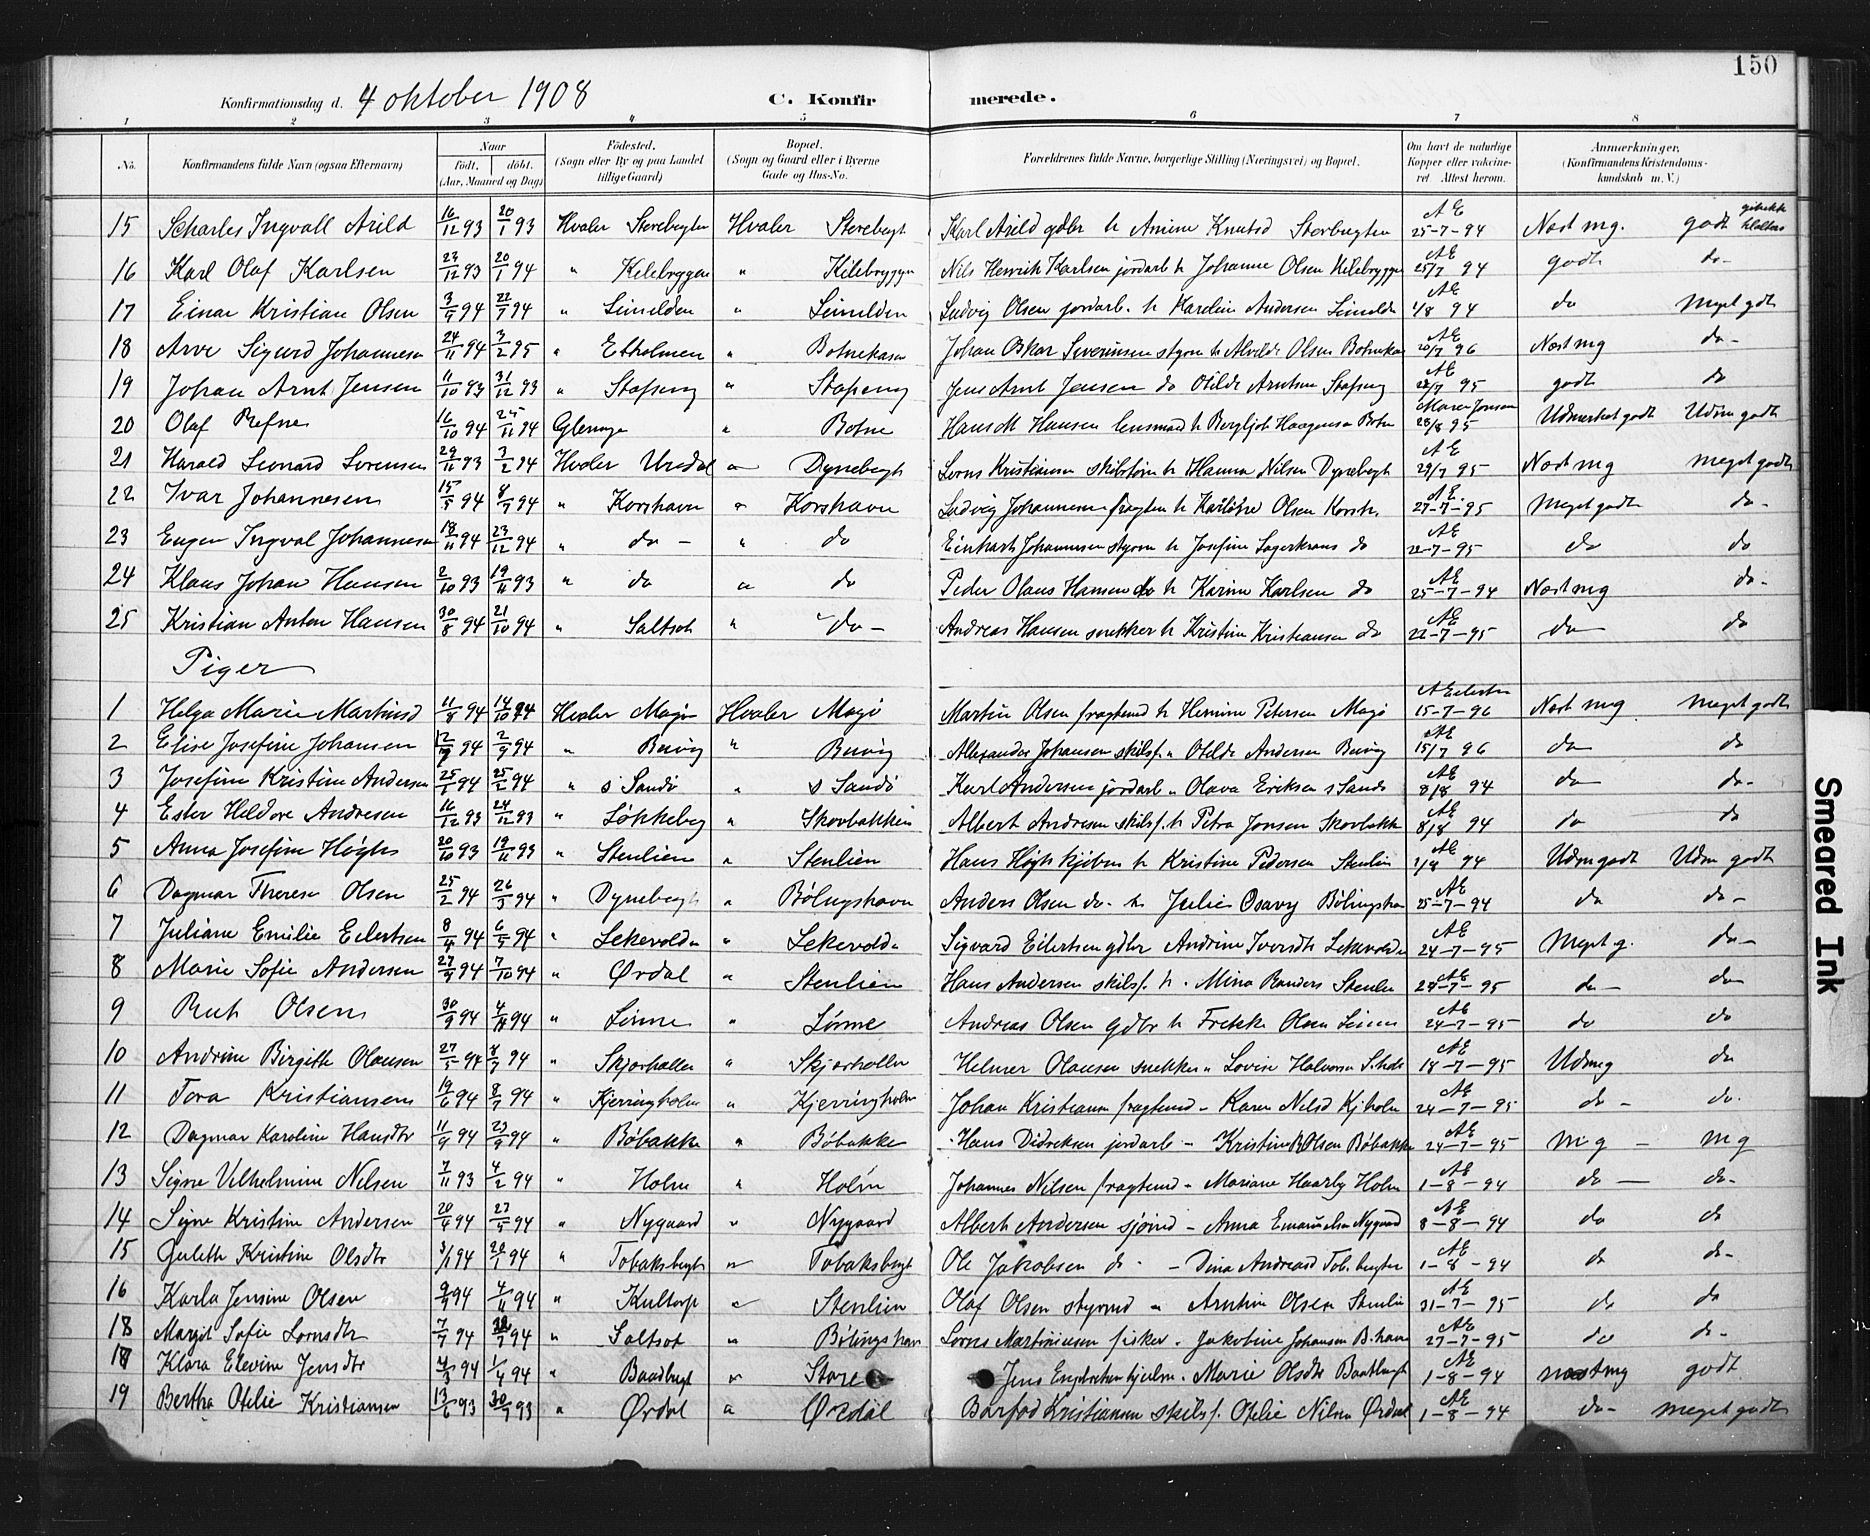 150
Konfirmationsdag d. 4 oktober 1908 C. Konfirmerede.
1 2 3 4 5 6 7 8
No. Konfirmandens fulde Navn (ogsaa Efternavn) Naar født. døbt. (Aar, Maaned og Dag) Fødested. (Sogn eller By og paa Landet tillige Gaard) Bopæl. (Sogn og Gaard eller i Byerne Gade og Hus-No. Forældrenes fulde Navne, borgerlige Stilling (Næringsvei) og Bopæl. Om havt de naturlige Kopper eller vaccineret Attest herom. Anmærkninger. (Konfirmandens Kristendomskundskab m. V.)
15 Scharles Ingvall Arild 16/12 93 20/1 93 Hvaler Storebugten Hvaler Storebugt Karl Arild gdbr h Amine Knutsd Storbugten AE 25-7-94 Nost mg. godt
16 Karl Olaf Karlsen 23/12 93 20/1 94 " Kilebryggen " Kilebryggen Nils Henrik Karlsen jordarb h Johanne Olsen Kilebrygge AE 25/7 94 godt do-
17 Einar Kristian Olsen 22/7 94 " " Ludvig Olsen jordarb. h Karelin Andersen AE 1/8 94 do Meget godt
18 Arve Sigurd Johannesen 24/11 94 3/2 95 " Etholmen " Botnekasa Johan Oskar Severinsen styrm h Alvilde Olsen Botnekas AE 20/7 96 Nost mg do-
19 Johan Arnt Jensen 11/10 93 31/12 93 " Stafseng " Stafseng Jens Arnt Jensen do Otilde Arntsen Stafseng AE 22/7 95 godt do
20 Olaf Refne 16/10 94 25/11 94 Glemmge " Botne Hans M Hansen lensmand h Bergljot Haagensen Botne Maren Jonsen 28/8 95 Udmerket godt Udm godt
21 Harald Leonard Lorensen 29/11 93 3/2 94 Hvaler Urdal " Dynebugt Lorns Kristiansen skibstøm h Hanna Nilsen Dynebugt AE 29/7 95 Nost mg meget godt
22 Ivar Johannesen 15/5 94 8/7 94 " Korshavn " Korshavn Ludvig Johannesen fragtem h Olsen Korsh. AE. 27-7-95 Meget godt do-
23 Eugen Ingval Johannesen 18/11 94 23/12 94 " do - " do Einhart Johannesen styrm h Josefine Lagerkrans do AE 22-7-95 do do
24 Klaus Johan Hansen 2/10 93 19/11 93 " do " do Peder Olaus Hansen do h Karine Karlsen do AE 25-7-94 Nost mg do-
25 Kristian Anton Hansen 30/8 94 21/10 94 " Saltsot " do- Andreas Hansen snekker h Kristine Kristiansen do AE 22-7-95 do do
Piger
1 Helga Marie Martinsd 11/8 94 14/10 94 Hvaler Magø Hvaler Magø Martin Olsen fragtemd h Hemine Petersen Magø A Eilertsen 15-7-96 Nost mg meget godt
2 Elise Josefine Johansen 12/7 94 2/9 94 " Buvig " Buvig Alexander Johansen skilsf. " Otilde Andersen Buvig AE 15/7 96 do do
3 Josefine Kristine Andersen 25/1 94 25/2 94 " s Sandø " s Sandø Karl Andersen jordarb " Olava Eriksen s Sandø AE 8/8 94 do do-
4 Ester Heldore Andresen 16/12 93 24/12 93 " Løkkeberg " Skovbakken Albert Andresen skilsf. h Petra Jonsen Skovbakk AE 8/8 94 do do
5 Anna Josefine Høgh 20/10 93 19/11 93 " Stenlien " Stenlien Hans Høgh skjøbm h Kristine Pedersen Stenlin AE 1/8 94 Udm godt Udm godt
6 Dagmar Therese Olsen 25/2 94 26/3 94 " Dynebugt " Bølingshavn Anders Olsen do. h Julie Osavy Bølingsha AE 25-7-94 do do-
7 Juliane Emilie Eilertsen 8/4 94 6/5 94 " Lekevolden " Lekevolden Sigvard Eilertsen gdbr Andrine Iversdt Lekevolden AE 24-7-95 Meget g. do-
8 Marie Sofie Andersen 27/8 94 7/10 94 " Ørdal " Stenlien Hans Andersen skilsf. h. Mina Randers Stenli AE 24-7-95 do- do-
9 Rut Olsen 30/9 94 4/11 94 " Lønne " Lønne Andreas Olsen gdbr h Frekke Olsen AE 24-7-95 do do
10 Andrine Birgitte Olausen 27/5 94 8/7 94 " Skjærhallen " Skjærhallen Helmer Olausen snekker " Lovise Halvorsen AE 18-7-95 Udmg do
11 Tora Kristiansen 19/6 94 8/7 94 " Kjerringholm " Kjerringholm Johan Kristiansen fragtemd - Karen Nilsd Kjholm AE 24-7-95 do- do-
12 Dagmar Karoline Hansdtr 11/9 94 23/9 94 " Bøbakke " Bøbakke Hans Didreksen jordarb - Kristine B Olsen Bøbakke AE 24-7-95 mg - mg
13 Signe Vilhelmine Nilsen 7/11 93 4/2 94 " Holm " Holm Johannes Nilsen fragtemd - Mariane Haarby Holm AE 1-8-94 do - do-
14 Signe Kristine Andersen 20/4 94 27/5 94 " Nygaard " Nygaard Albert Andersen sjømd - Anna Emanuelsen Nygaard AE 8-8-94 do do
15 Gulette Kristine Olsdtr 3/1 94 20/1 94 " Tobaksbugt " Tobaksbugt Ole Jakobsen do - Dina Andreasd Tob. bugten AE 1-8-94 do do-
16 Karla Jensine Olsen 9/9 94 4/11 94 " Kultorp " Stenlien Olaf Olsen styrmd " Arntine Olsen Stenlie AE 31-7-95 do do
18 Margit Sofie Lornsdtr 7/7 94 22/7 94 " Saltsot " Bølingshavn Lorns Martiniusen fisker. Jakobine Johansen B.havn AE 27-7-95 do do-
17 Klara Elevine Jensdtr 4/3 94 1/4 94 " Baadbugt " Store Jens . Marie Olsdtr Baadbugt AE 1-8-94 nost mg godt
19 Bertha Otelie Kristiansen 13/6 93 30/7 93 " Ørdal " Ørdal Barfod Kristiansen skilsf. Otelie Nilsen Ørdal AE 1-8-94 do- meget godt
Smeared Ink